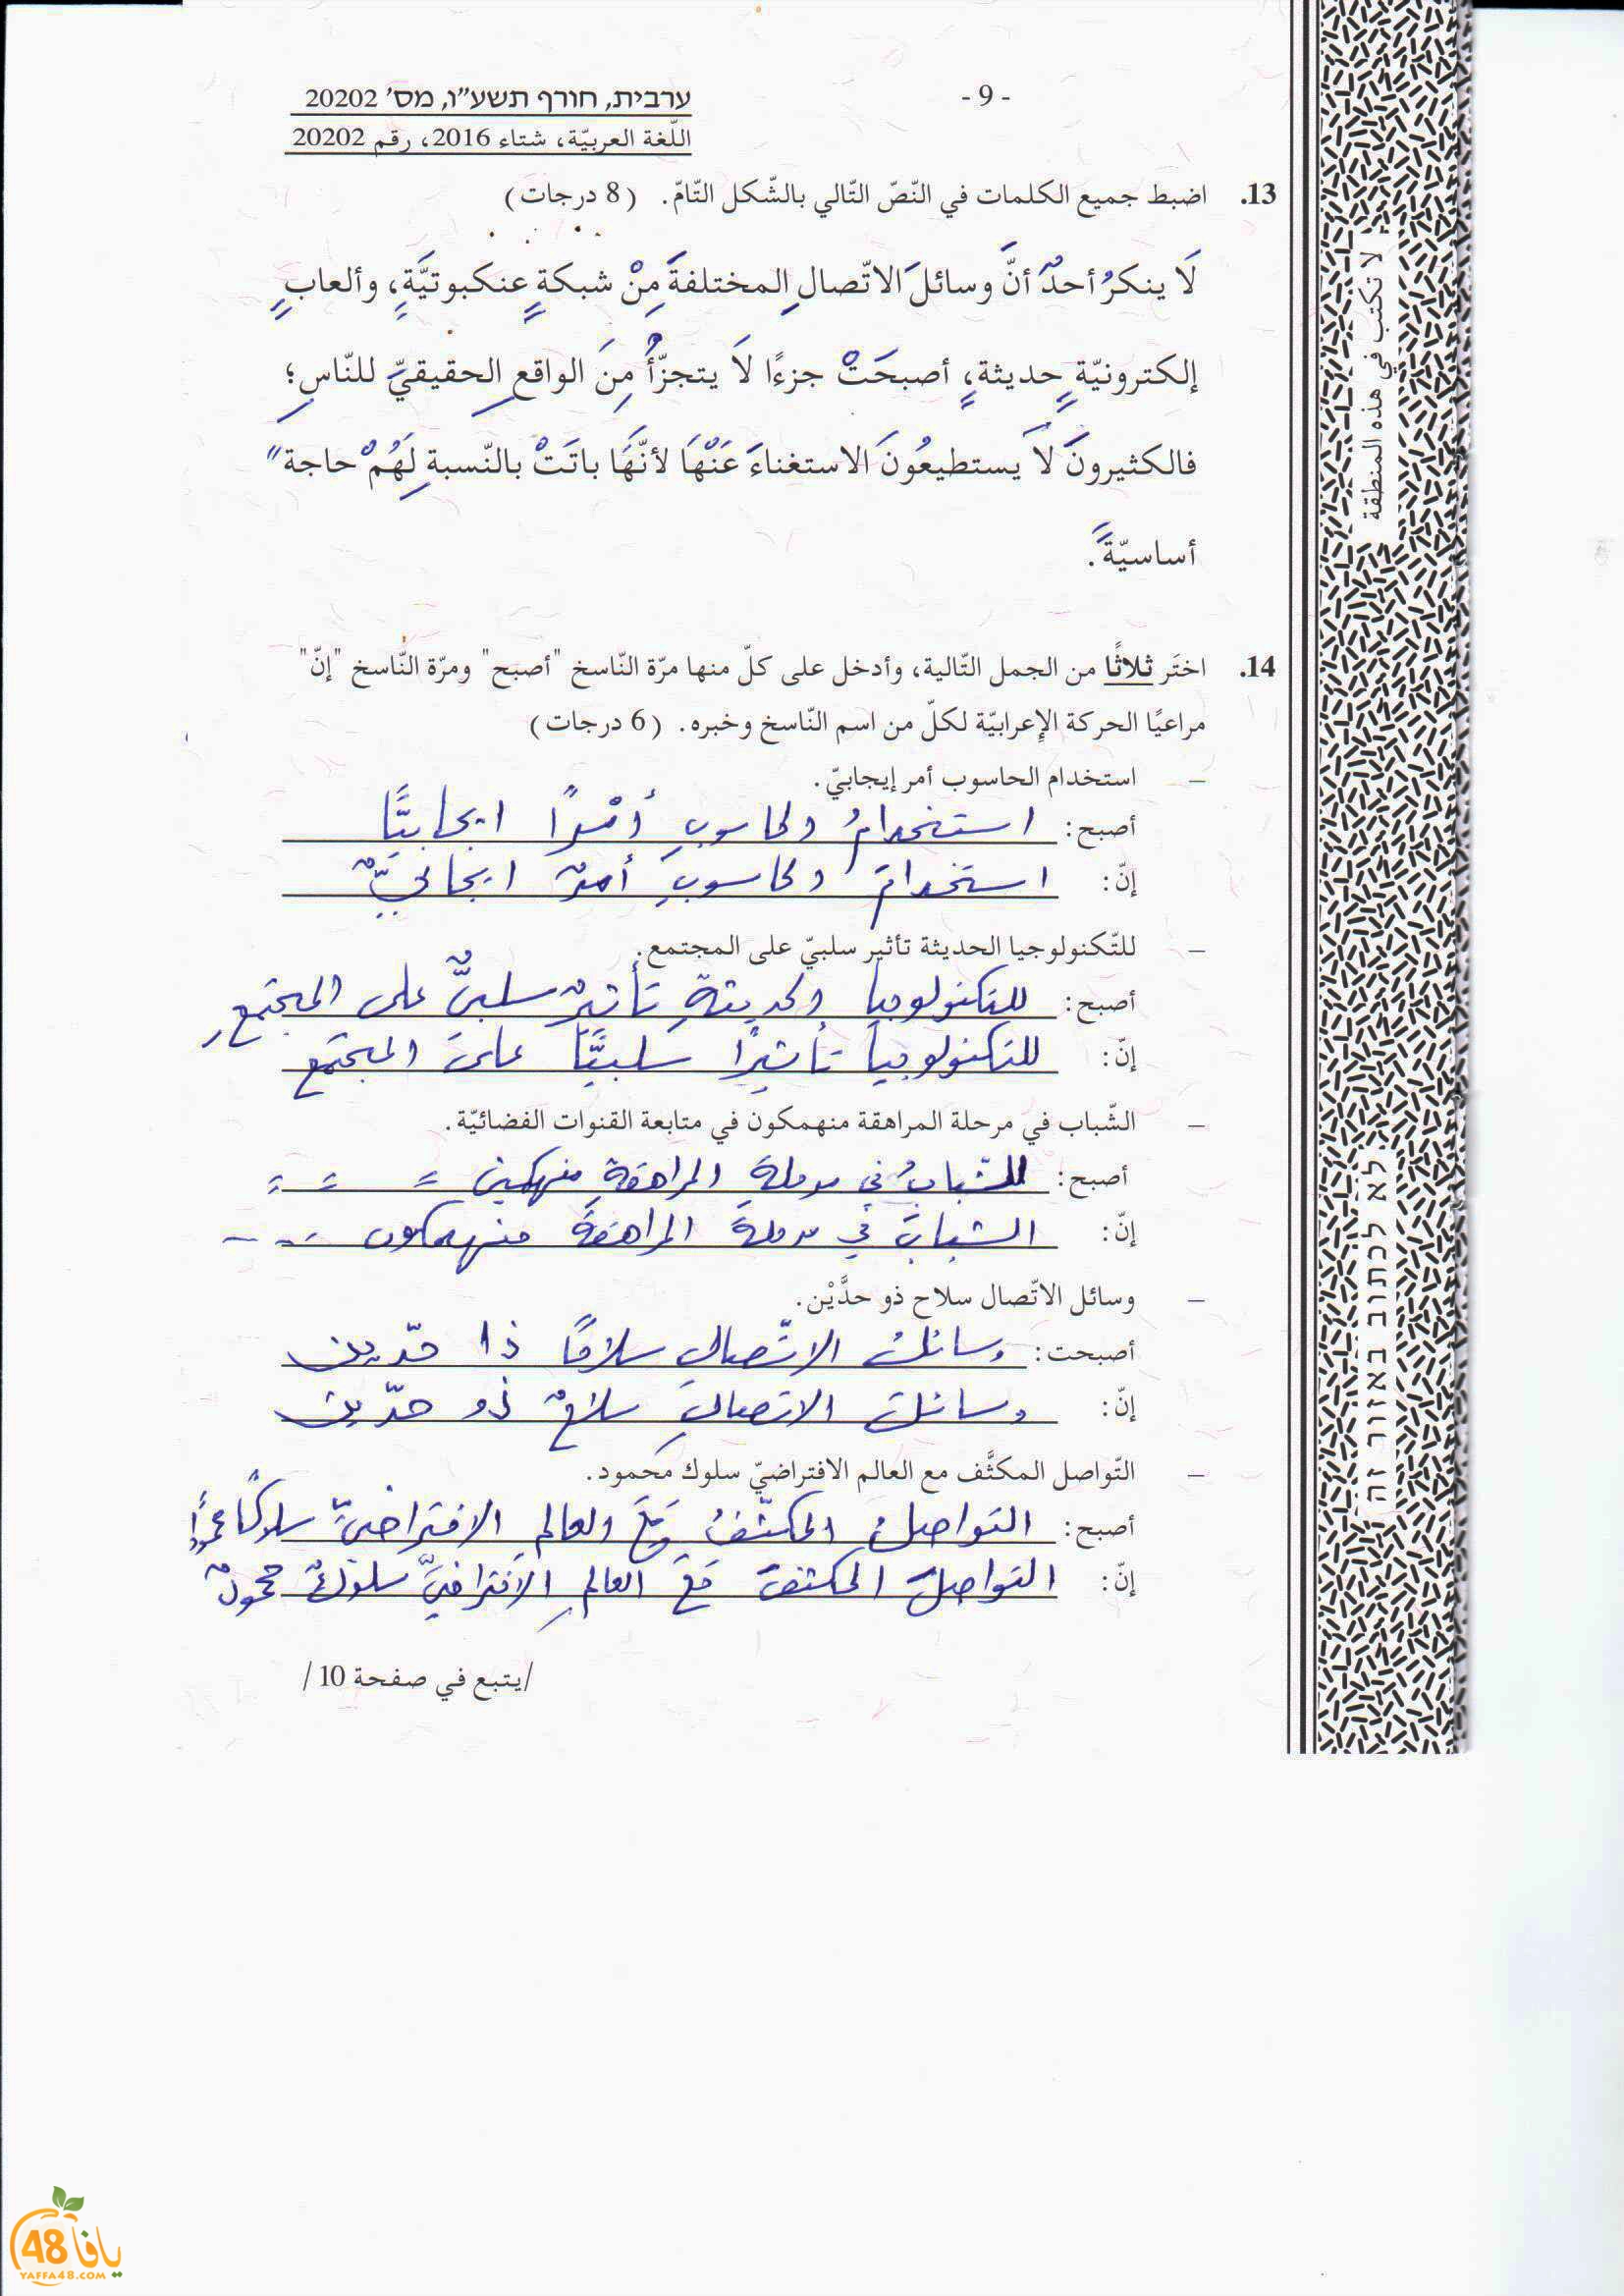 - 9 -
ערבית, חורף תשע"ו, מס' 20202
اللّغة العربيّة، شتاء 2016، رقم 20202
13. اضبط جميع الكلمات في النّصّ التّالي بالشّكل التّامّ. (8 درجات)
لَا ينكرُ أحدٌ أنَّ وسائلَ الاتّصالِ المختلفةَ مِنْ شبكةٍ عنكبوتيَّةٍ، وألعابٍ
إلكترونيّةٍ حديثةٍ، أصبحَتْ جزءًا لَا يتجزّأُ مِنَ الواقعِ الحقيقيِّ للنّاسِ؛
فالكثيرونَ لَا يستطيعُونَ الاستغناءَ عَنْهَا لأنّهَا باتَتْ بالنّسبةِ لَهُمْ حاجةً
أساسيّةً.
14. اختَر ثلاثًا من الجمل التّالية، وأدخل على كلّ منها مرّة النّاسخ "أصبح" ومرّة النّاسخ "إنّ"
مراعيًا الحركة الإعرابيّة لكلّ من اسم النّاسخ وخبره. (6 درجات)
– استخدام الحاسوب أمر إيجابيّ.
أصبح: استخدامُ الحاسوبِ أمْرًا ايجابيًّا
إنّ: استخدامَ الحاسوبِ أمرٌ ايجابيٌّ
– للتّكنولوجيا الحديثة تأثير سلبيّ على المجتمع.
أصبح: للتكنولوجيا الحديثةِ تأثيرٌ سلبيٌّ على المجتمعِ
إنّ: للتكنولوجيا تأثيرًا سلبيًّا على المجتمع
– الشّباب في مرحلة المراهقة منهمكون في متابعة القنوات الفضائيّة.
أصبح: الشبابُ في مرحلةِ المراهقةِ منهمكين = = =
إنّ: الشبابَ في مرحلة المراهقة منهمكون - - -
– وسائل الاتّصال سلاح ذو حدَّيْن.
أصبحت: وسائلُ الاتّصالِ سلاحًا ذا حدّين
إنّ: وسائلَ الاتصالِ سلاحٌ ذو حدّين
– التّواصل المكثَّف مع العالم الافتراضيّ سلوك محمود.
أصبح: التواصلُ المكثّفُ مَعَ العالم الافتراضيِّ سلوكًا محمودًا
إنّ: التواصلَ المكثفَ مَعَ العالمِ الافتراضيِّ سلوكٌ محمودٌ
/يتبع في صفحة 10/
لا تكتب في هذه المنطقة
לא לכתוב באזור זה
يافا 48
YAFFA48.COM